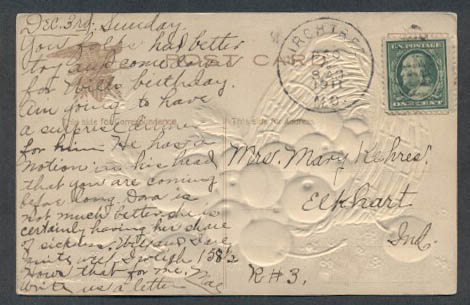 Dec. 3rd. Sunday.
You folks had better
try and come down
for Will's birthday.
Am going to have
a surprise dinner
for him. He has a
notion in his head
that you are coming
before long. Dora is
not much better, she is
certainly having her share
of sickness.
well, I weigh 138 1/2
How's that for me.
Write us a letter Mae
POST CARD
This side for Correspondence
This side for Address
DEC
1911
MO.
U.S. POSTAGE
ONE CENT
Mrs. Mary Kehres,
Elkhart
Ind.
R#3.